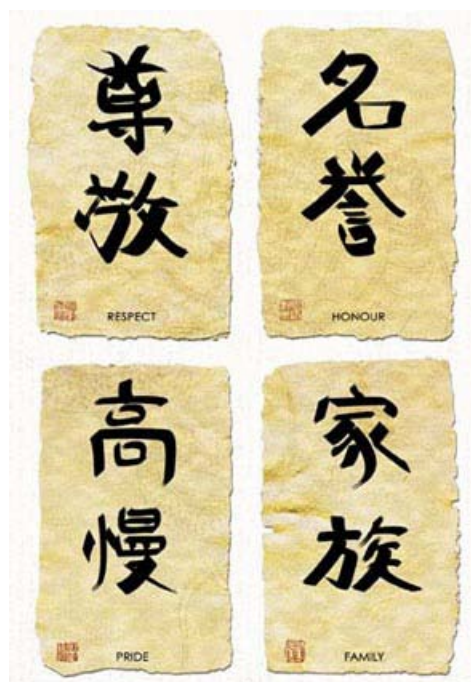 尊
敬
RESPECT
名
誉
HONOUR
高
慢
PRIDE
家
族
FAMILY